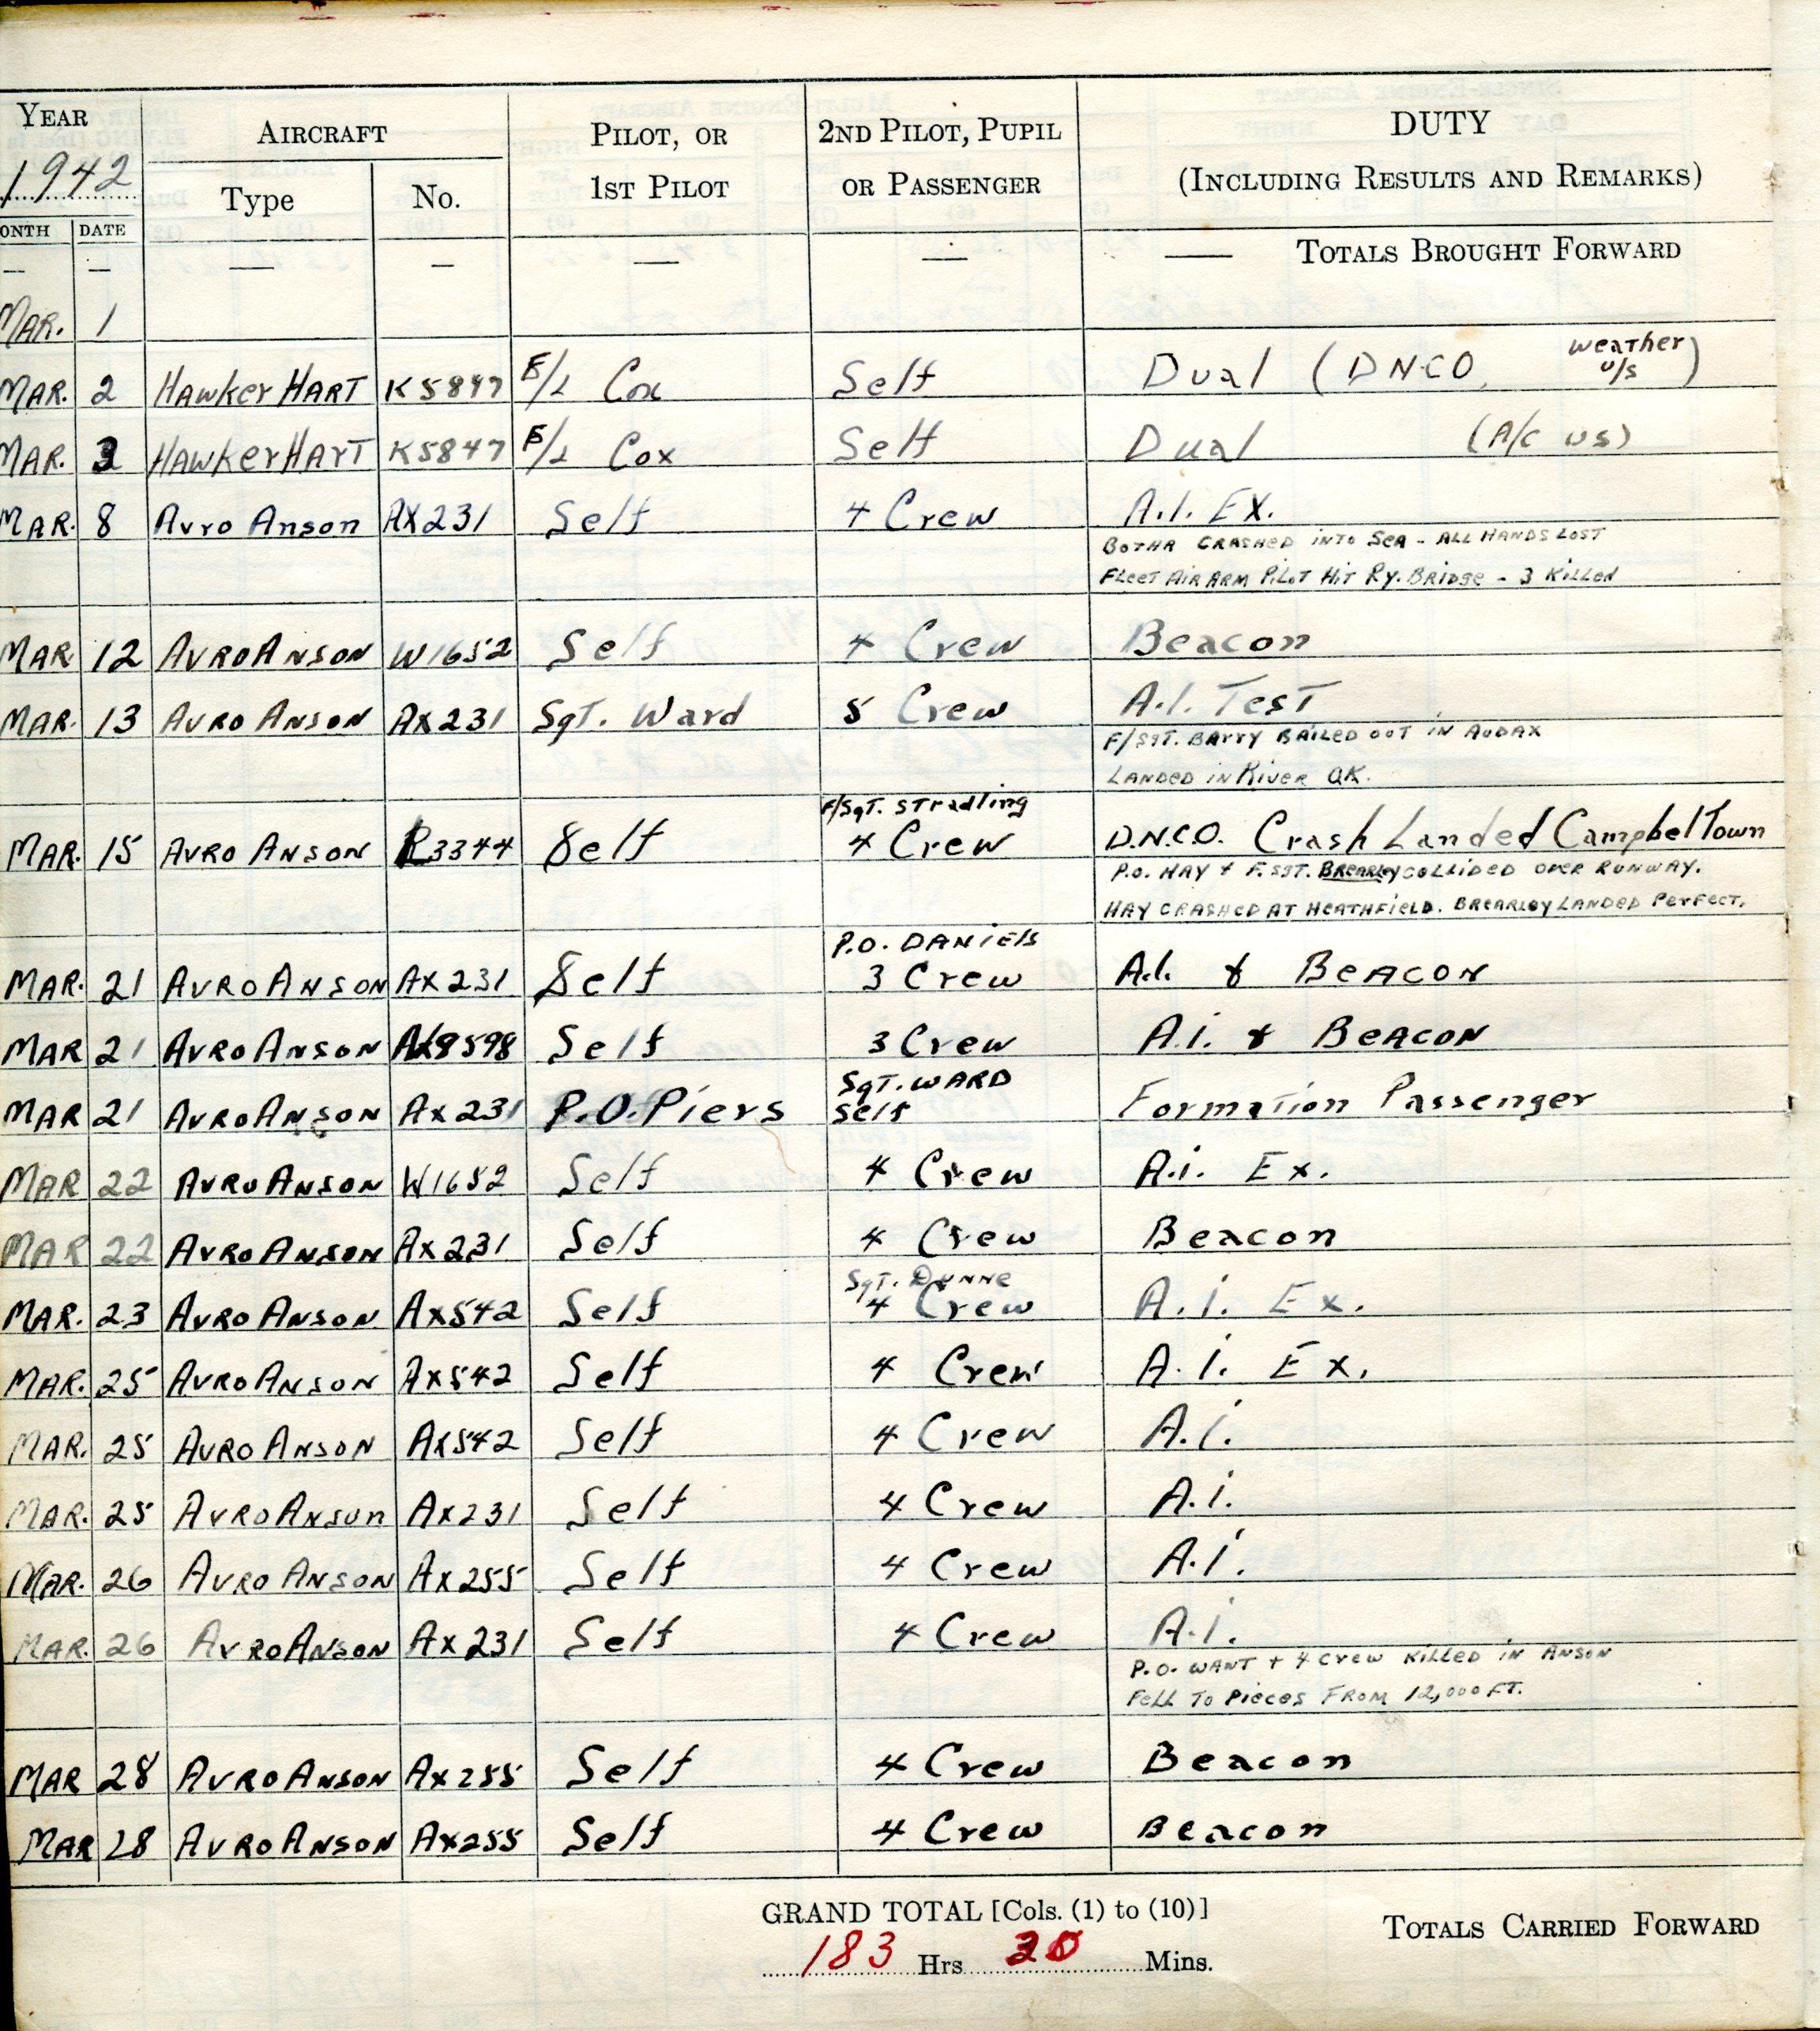 YEAR AIRCRAFT PILOT, OR 2ND PILOT, PUPIL DUTY
1942 Type No. 1ST PILOT OR PASSENGER (INCLUDING RESULTS AND REMARKS)
ONTH DATE
— — — — — — — TOTALS BROUGHT FORWARD
MAR. 1
MAR. 2 Hawker HART K5847 F/L Cox Self Dual (DNCO weather u/s)
MAR. 3 HAWKer HART K5847 F/L Cox Self Dual (A/C US)
MAR. 8 Avro Anson AX231 Self 4 Crew A.I. EX.
BOTHA CRASHED INTO SEA - ALL HANDS LOST
FLEET AIR ARM PILOT HIT RY. BRIDGE - 3 KILLED
MAR 12 AVRO ANSON W1652 Self 4 Crew Beacon
MAR. 13 AVRO ANSON AX231 SgT. Ward 5 Crew A.I. TesT
F/SGT. BARRY BAILED OUT IN AUDAX
LANDED IN RIVER OK.
F/SgT. STradling
MAR. 15 AVRO ANSON R3344 Self 4 Crew D.N.C.O. Crash Landed CampbelTown
P.O. HAY & F.SGT. BREARLEY COLLIDED OVER RUNWAY.
HAY CRASHED AT HEATHFIELD. BREARLEY LANDED PERFECT.
P.O. DANIELS
MAR. 21 AVRO ANSON AX231 Self 3 Crew A.I. & BEACON
MAR 21 AVRO ANSON Self 3 Crew A.I. & BEACON
SgT. WARD
MAR 21 AVRO ANSON AX231 P.O. Piers Self Formation Passenger
MAR 22 AVRO ANSON W1652 Self 4 Crew A.I. Ex.
MAR 22 AVRO ANSON AX231 Self 4 Crew Beacon
SgT. DUNNE
MAR. 23 AVRO ANSON AX542 Self 4 Crew A.I. Ex.
MAR. 25 AVRO ANSON AX542 Self 4 Crew A.I. Ex.
MAR. 25 AVRO ANSON AX542 Self 4 Crew A.I.
MAR. 25 AVRO ANSON AX231 Self 4 Crew A.I.
MAR. 26 AVRO ANSON AX255 Self 4 Crew A.I.
MAR. 26 AVRO ANSON AX231 Self 4 Crew A.I.
P.O. WANT + 4 CREW KILLED IN ANSON
FELL TO PIECES FROM 12,000 FT.
MAR 28 AVRO ANSON AX255 Self 4 Crew Beacon
MAR 28 AVRO ANSON AX255 Self 4 Crew Beacon
GRAND TOTAL [Cols. (1) to (10)] TOTALS CARRIED FORWARD
183 Hrs 20 Mins.